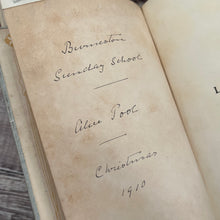 Burneston
Sunday School
Alice Pool
Christmas
1910
L